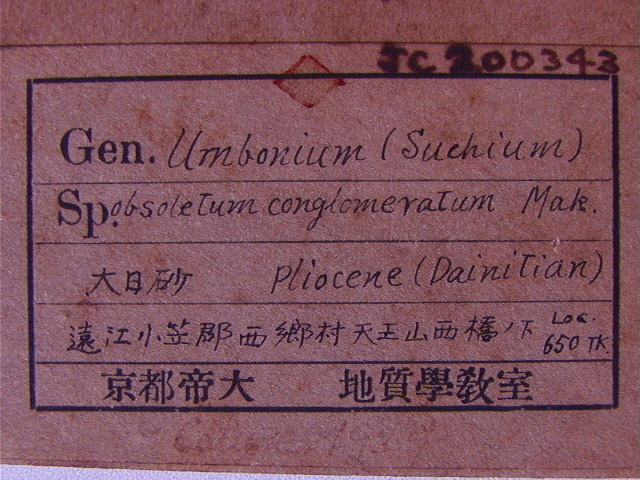 JC200343
Gen. Umbonium (Suchium)
Sp. obsoletum conglomeratum Mak.
大日砂 Pliocene (Dainitian)
遠江小笠郡西鄉村天王山西橋ノ下 Loc. 650 TK
京都帝大 地質學敎室